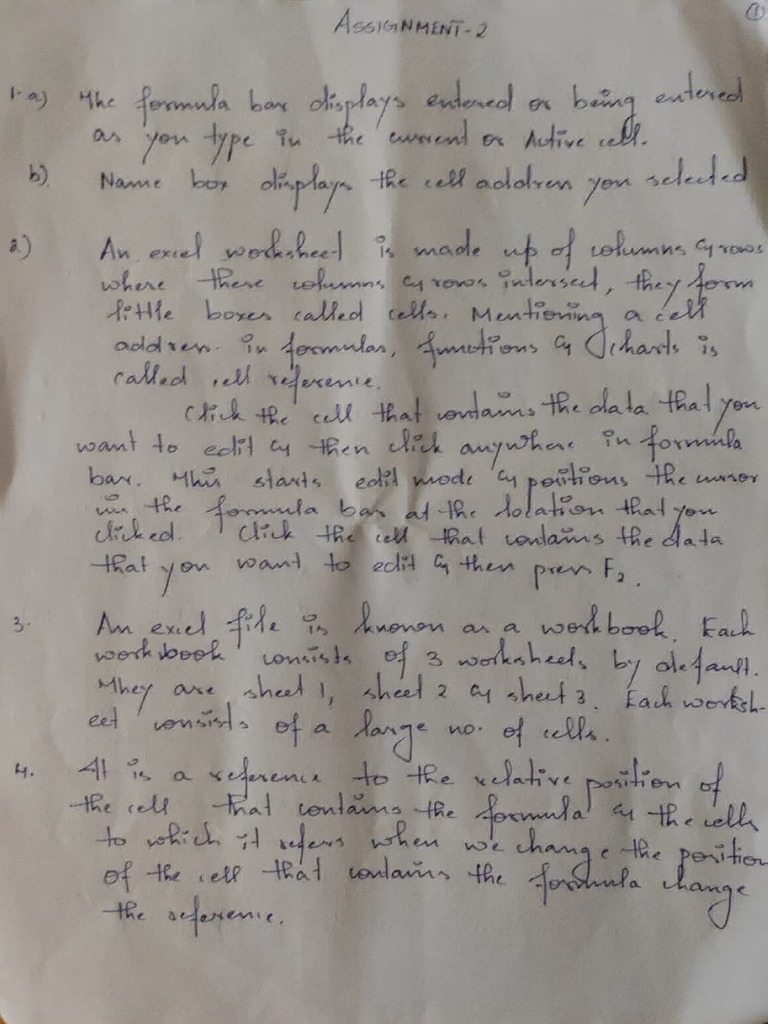 ①
ASSIGNMENT-2
1. a) The formula bar displays entered or being entered
as you type in the current or Active cell.
b) Name box displays the cell address you selected
2) An excel worksheet is made up of columns & rows
where these columns & rows intersect, they form
little boxes called cells. Mentioning a cell
address in formulas, functions & charts is
called cell reference.
Click the cell that contains the data that you
want to edit & then click anywhere in formula
bar. This starts edit mode & positions the cursor
in the formula bar at the location that you
clicked. Click the cell that contains the data
that you want to edit & then press F2.
3. An excel file is known as a workbook. Each
workbook consists of 3 worksheets by default.
They are sheet 1, sheet 2 & sheet 3. Each worksh-
eet consists of a large no. of cells.
4. It is a reference to the relative position of
the cell that contains the formula & the cells
to which it refers when we change the position
of the cell that contains the formula change
the reference.